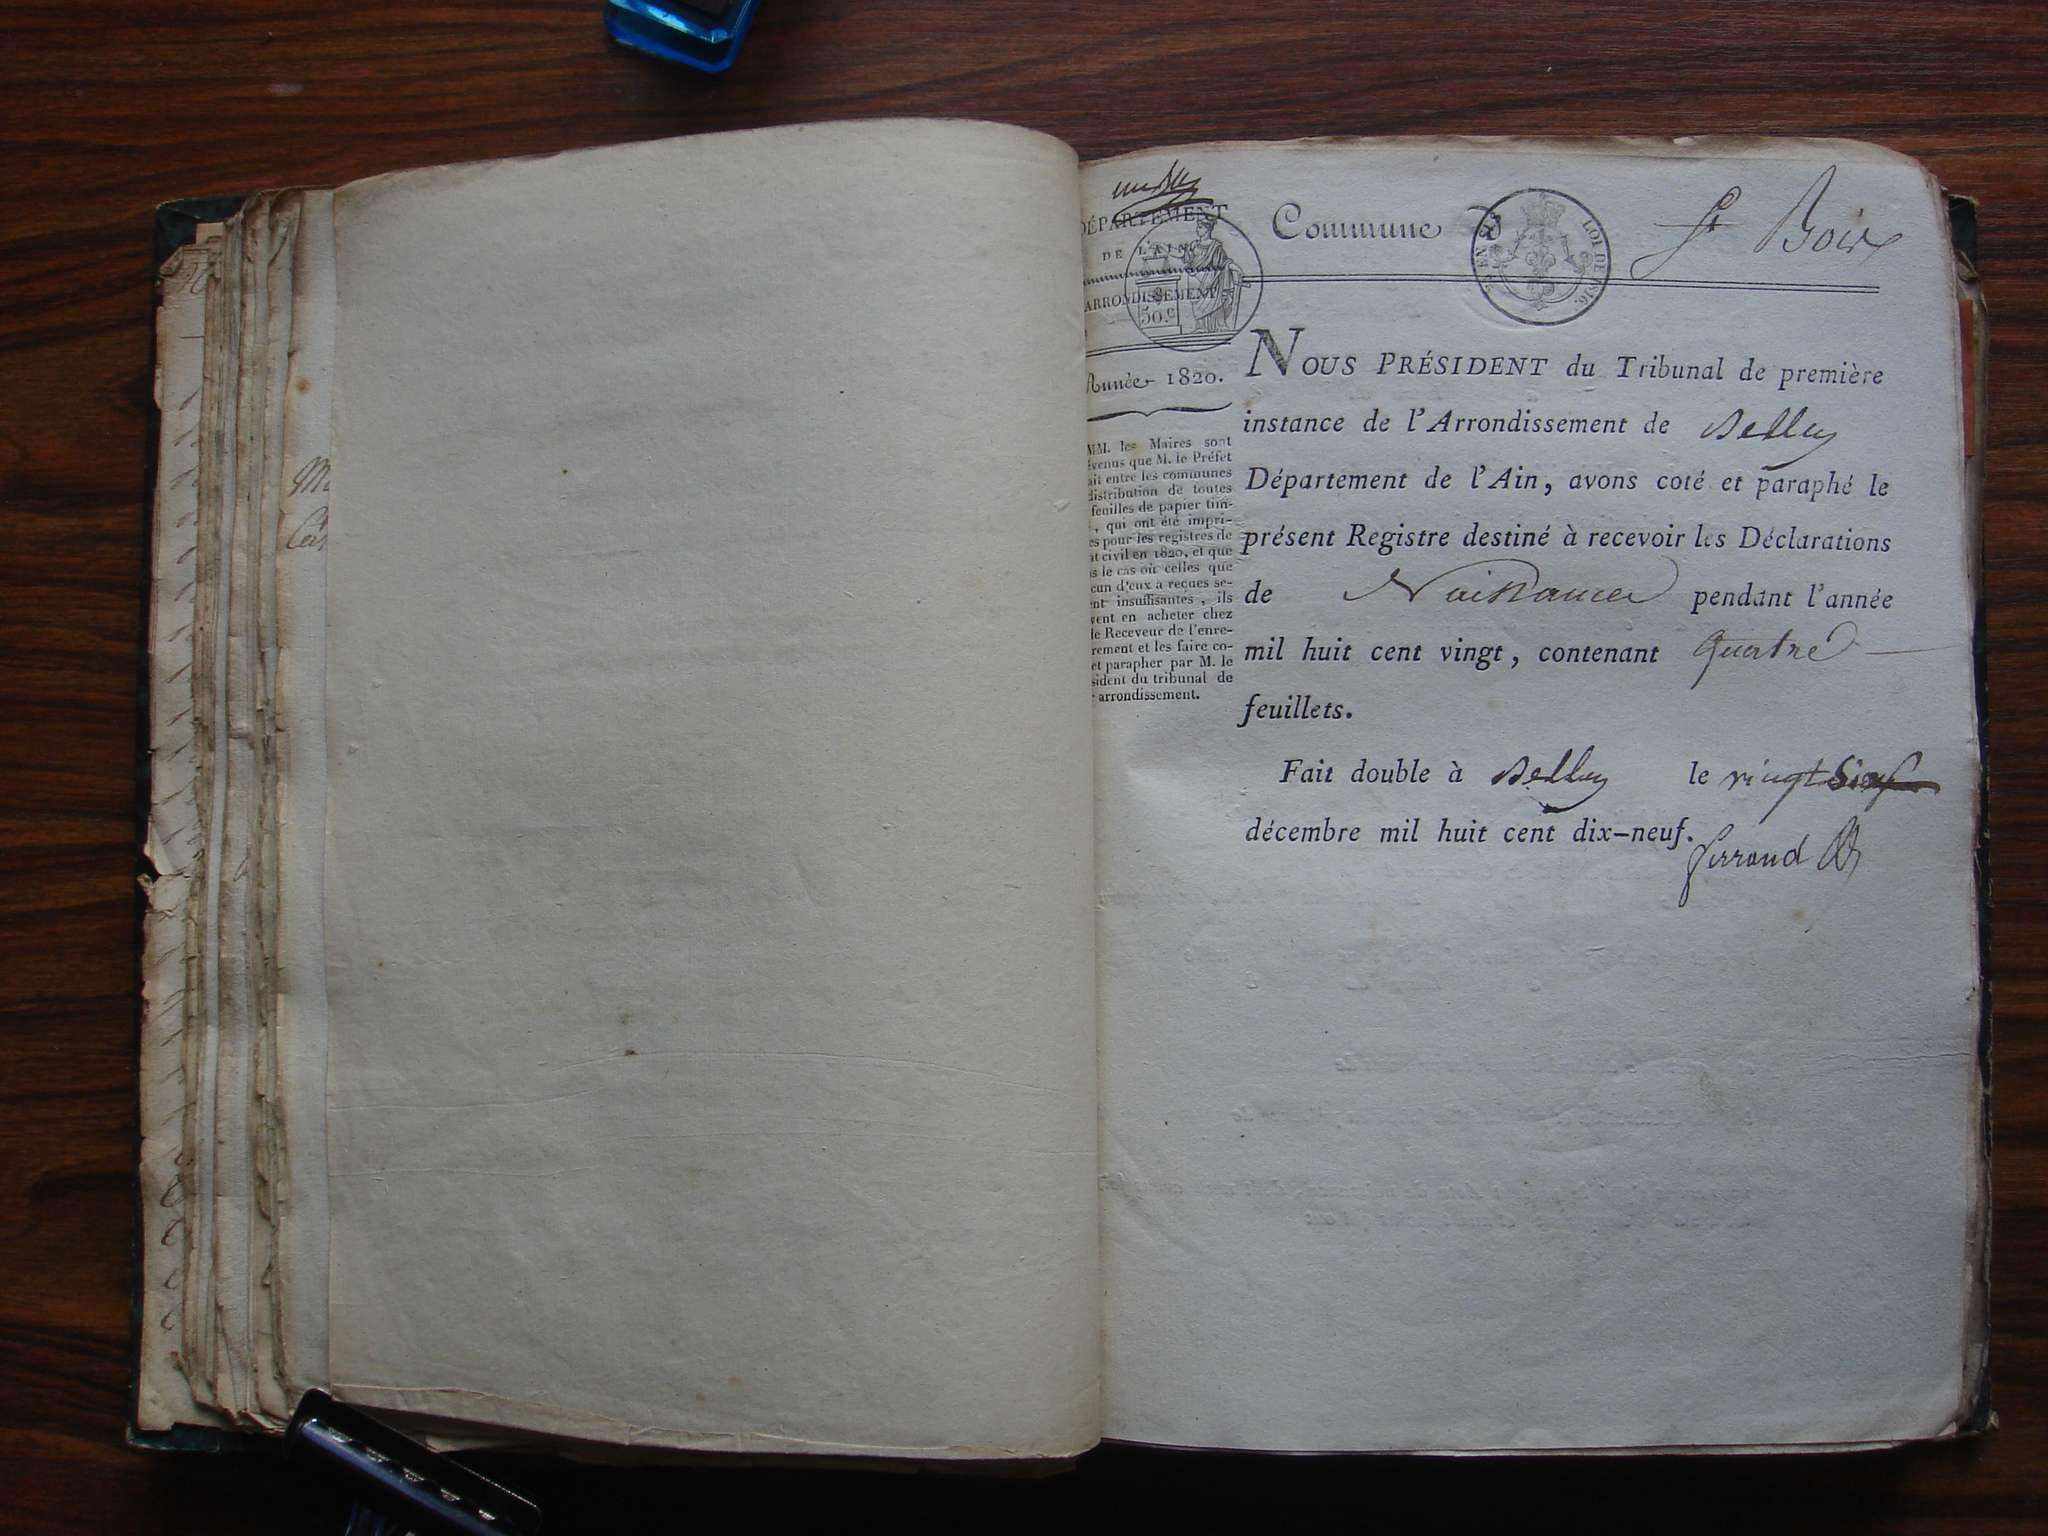 DÉPARTEMENT
DE L'AIN
ARRONDISSEMENT
50.c
Année 1820.
MM. les Maires sont
évenus que M. le Préfet
ait entre les communes
distribution de toutes
feuilles de papier tim-
, qui ont été impri-
es pour les registres de
at civil en 1820, et que
s le cas où celles que
cun d'eux a reçues se-
nt insuffisantes, ils
vent en acheter chez
le Receveur de l'enre-
rement et les faire co-
et parapher par M. le
sident du tribunal de
r arrondissement.
Commune
LOI DE 1816.
St Boix
NOUS PRÉSIDENT du Tribunal de première
instance de l'Arrondissement de Belley
Département de l'Ain, avons coté et paraphé le
présent Registre destiné à recevoir les Déclarations
de Naissances pendant l'année
mil huit cent vingt, contenant Quatre
feuillets.
Fait double à Belley le vingt
décembre mil huit cent dix-neuf.